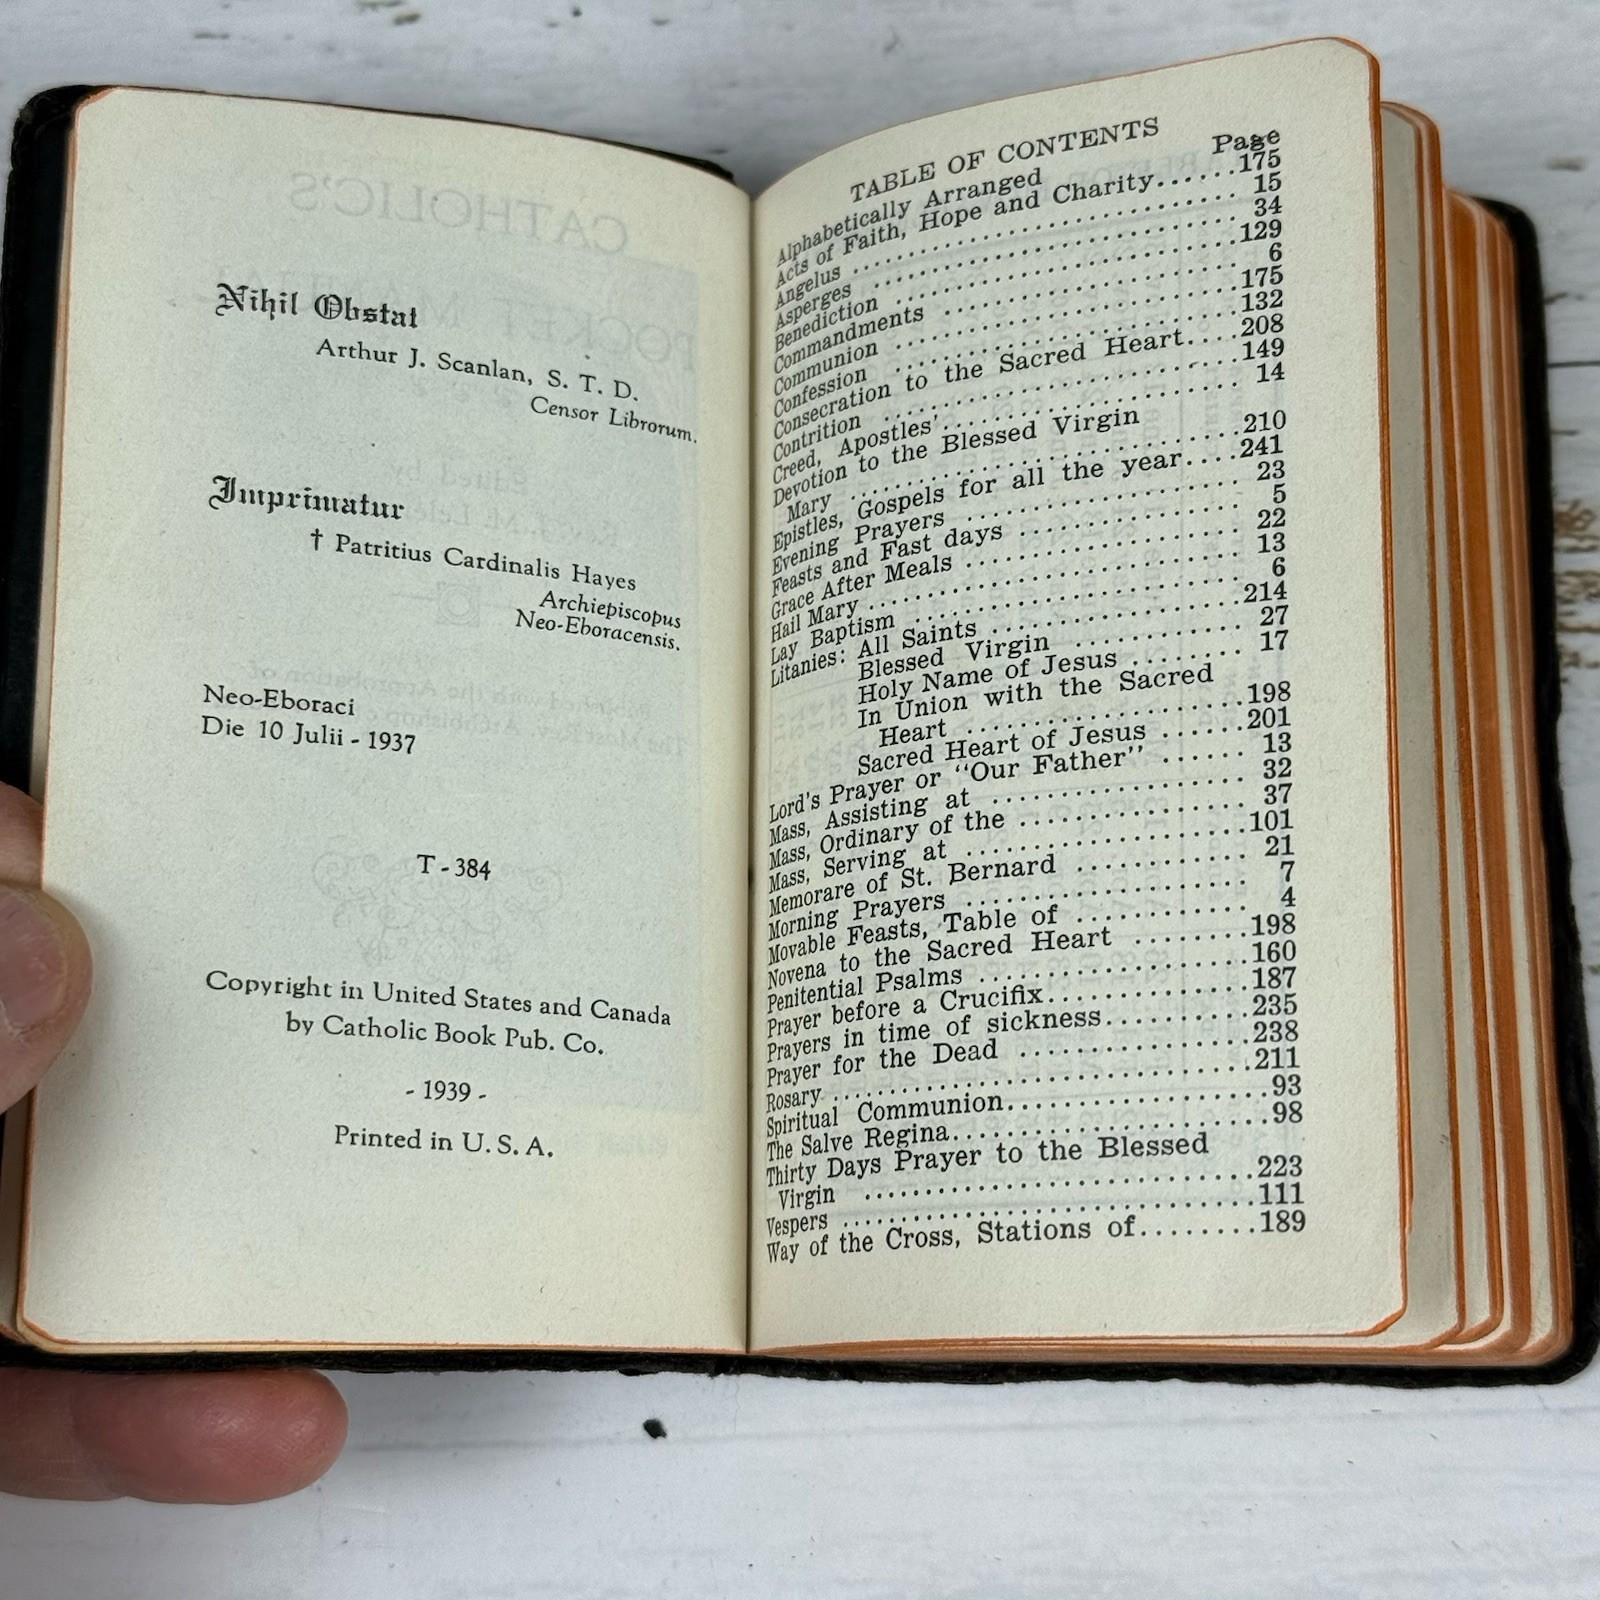 Nihil Obstat
Arthur J. Scanlan, S. T. D.
Censor Librorum.
Imprimatur
† Patritius Cardinalis Hayes
Archiepiscopus
Neo-Eboracensis.
Neo-Eboraci
Die 10 Julii - 1937
T - 384
Copyright in United States and Canada
by Catholic Book Pub. Co.
- 1939 -
Printed in U. S. A.
TABLE OF CONTENTS
Alphabetically Arranged Page
Acts of Faith, Hope and Charity......175
Angelus ........................ 15
Asperges ........................ 34
Benediction ........................129
Commandments ........................ 6
Communion ........................175
Confession ........................132
Consecration to the Sacred Heart....208
Contrition ........................149
Creed, Apostles'........................ 14
Devotion to the Blessed Virgin
Mary ........................210
Epistles, Gospels for all the year....241
Evening Prayers ........................ 23
Feasts and Fast days ................ 5
Grace After Meals .................. 22
Hail Mary ........................ 13
Lay Baptism ........................ 6
Litanies: All Saints ................214
Blessed Virgin .............. 27
Holy Name of Jesus ........ 17
In Union with the Sacred
Heart ....................198
Sacred Heart of Jesus ......201
Lord's Prayer or "Our Father" ...... 13
Mass, Assisting at .................. 32
Mass, Ordinary of the ................ 37
Mass, Serving at ....................101
Memorare of St. Bernard ............ 21
Morning Prayers .................... 7
Movable Feasts, Table of ............ 4
Novena to the Sacred Heart ........198
Penitential Psalms ..................160
Prayer before a Crucifix..............187
Prayers in time of sickness..........235
Prayer for the Dead ................238
Rosary ............................211
Spiritual Communion.................. 93
The Salve Regina...................... 98
Thirty Days Prayer to the Blessed
Virgin ............................223
Vespers ............................111
Way of the Cross, Stations of........189